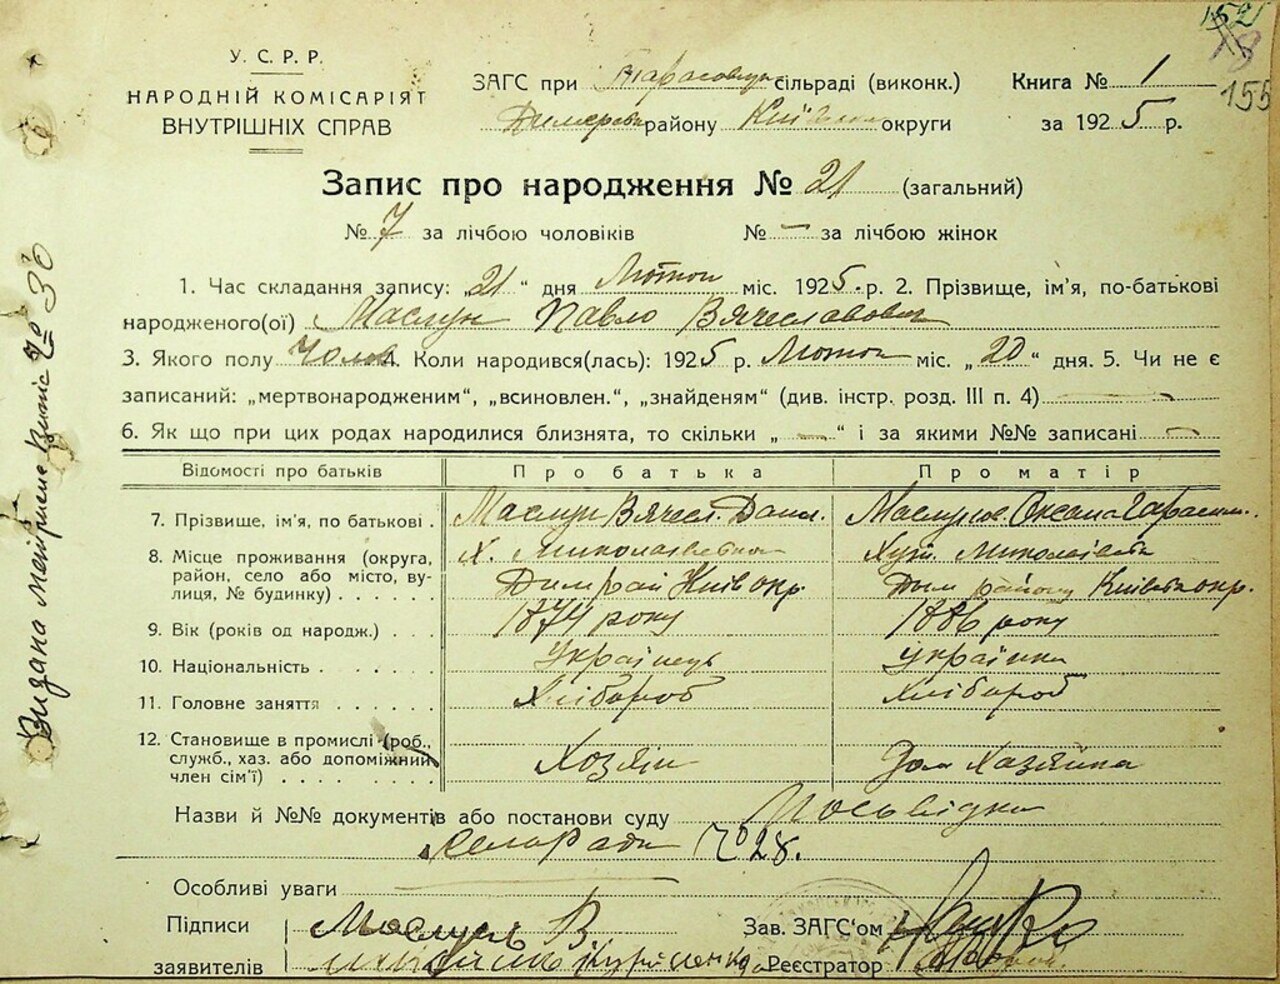 У. С. Р. Р.
НАРОДНІЙ КОМІСАРІЯТ
ВНУТРІШНІХ СПРАВ
ЗАГС при сільраді (виконк.)
Димерськ району Київськ округи
Книга № 1
за 1925 р.
155
Запис про народження № 21 (загальний)
№ 7 за лічбою чоловіків № — за лічбою жінок
1. Час складання запису: „21" дня Лютого міс. 1925 р. 2. Прізвище, ім'я, по-батькові
народженого(ої) Маслун Павло Вячеславович
3. Якого полу Чолов 4. Коли народився(лась): 1925 р. Лютого міс. „20" дня. 5. Чи не є
записаний: „мертвонародженим", „всиновлен.", „знайденям" (див. інстр. розд. III п. 4) —
6. Як що при цих родах народилися близнята, то скільки „—" і за якими №№ записані —
Відомості про батьків Про батька Про матір
7. Прізвище, ім'я, по батькові . Маслун Вячесл. Дани. Оксана Гарасим.
8. Місце проживання (округа, Х. Миколаївка Хут. Миколаївка
район, село або місто, ву- Дим рай Київ окр. Дим району Київськ окр.
лиця, № будинку) . . . . .
9. Вік (років од народж.) . . . 1874 року 1886 року
10. Національність . . . . . . Українець Українка
11. Головне заняття . . . . . . Хлібороб Хлібороб
12. Становище в промислі (роб.,
служб., хаз. або допоміжний Хозяїн Дом Хазяйка
член сім'ї) . . . . . . . .
Назви й №№ документів або постанови суду Посвідка
сельРади № 28.
Особливі уваги —
Підписи Маслун В. Зав. ЗАГС'ом
заявителів Реєстратор
Видана Метрична Випис 30